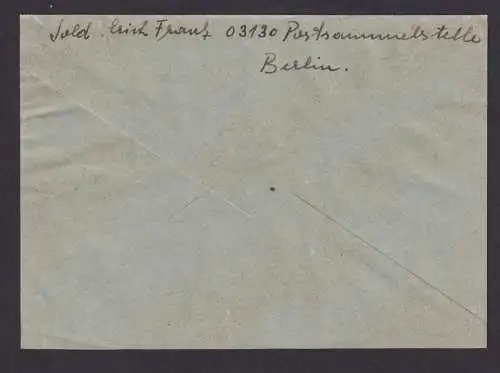 Sold. Erich Franz 03130 Postsammelstelle
Berlin.